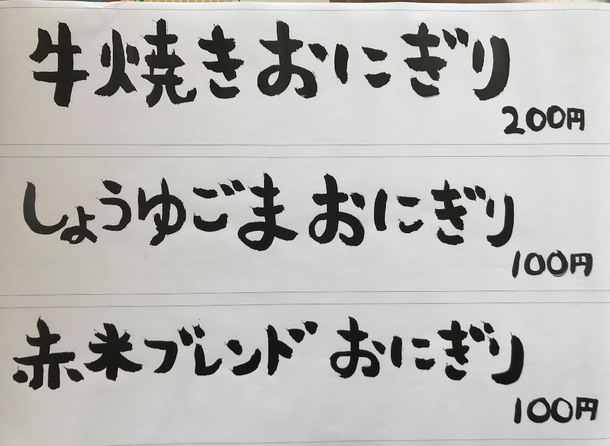 牛焼きおにぎり
200円
しょうゆごまおにぎり
100円
赤米ブレンドおにぎり
100円